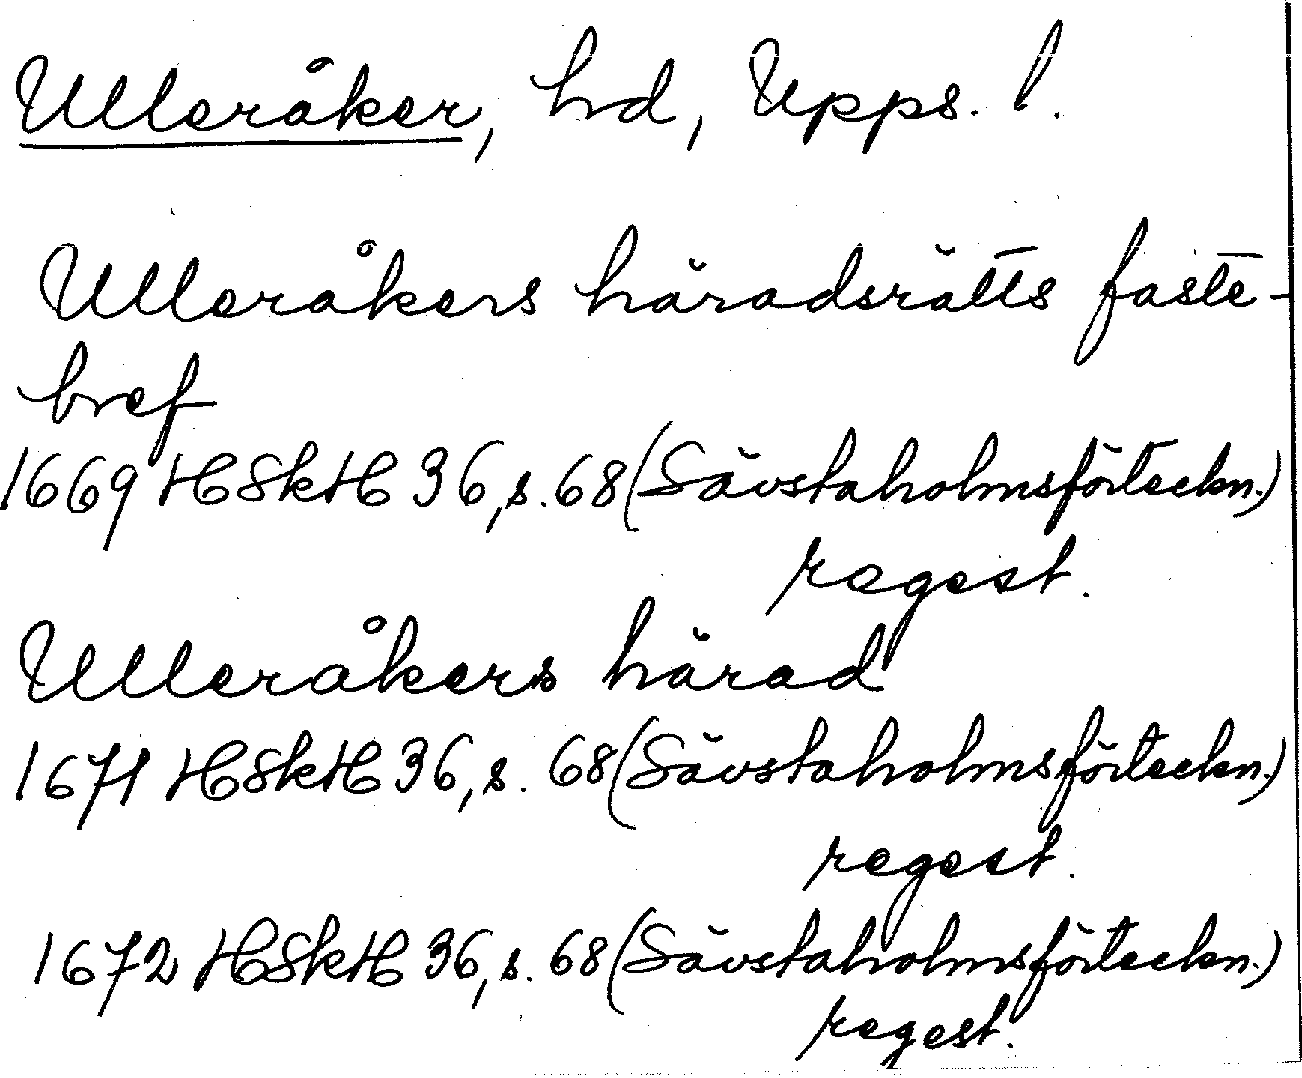 Ulleråker, hd, Upps. l.
Ulleråkers häradsrätts faste-
bref
1669 HSkH 36, s. 68 (Sävstaholmsförteckn.)
regest.
Ulleråkers härad
1671 HSkH 36, s. 68 (Sävstaholmsförteckn.)
regest.
1672 HSkH 36, s. 68 (Sävstaholmsförteckn.)
regest.